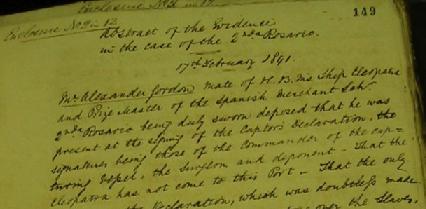 Enclosure No 2 in 12
149
Enclosure No 2 in 12.
Abstract of the Evidence
in the case of the 2nda Rosario.
17th February 1841.
Mr Alexander Gordon, mate of H. B. Ms Ship Cleopatra
and Prize Master of the Spanish Merchant
2nda Rosario being duly sworn deposed that he was
present at the signing of the Captors Declaration, the
signatures being those of the Commander of the cap-
turing Vessel, the Surgeon and deponent - That the
Cleopatra has not come to this Port - That the only
the Declaration, which was doubtless made
over the Slaves,